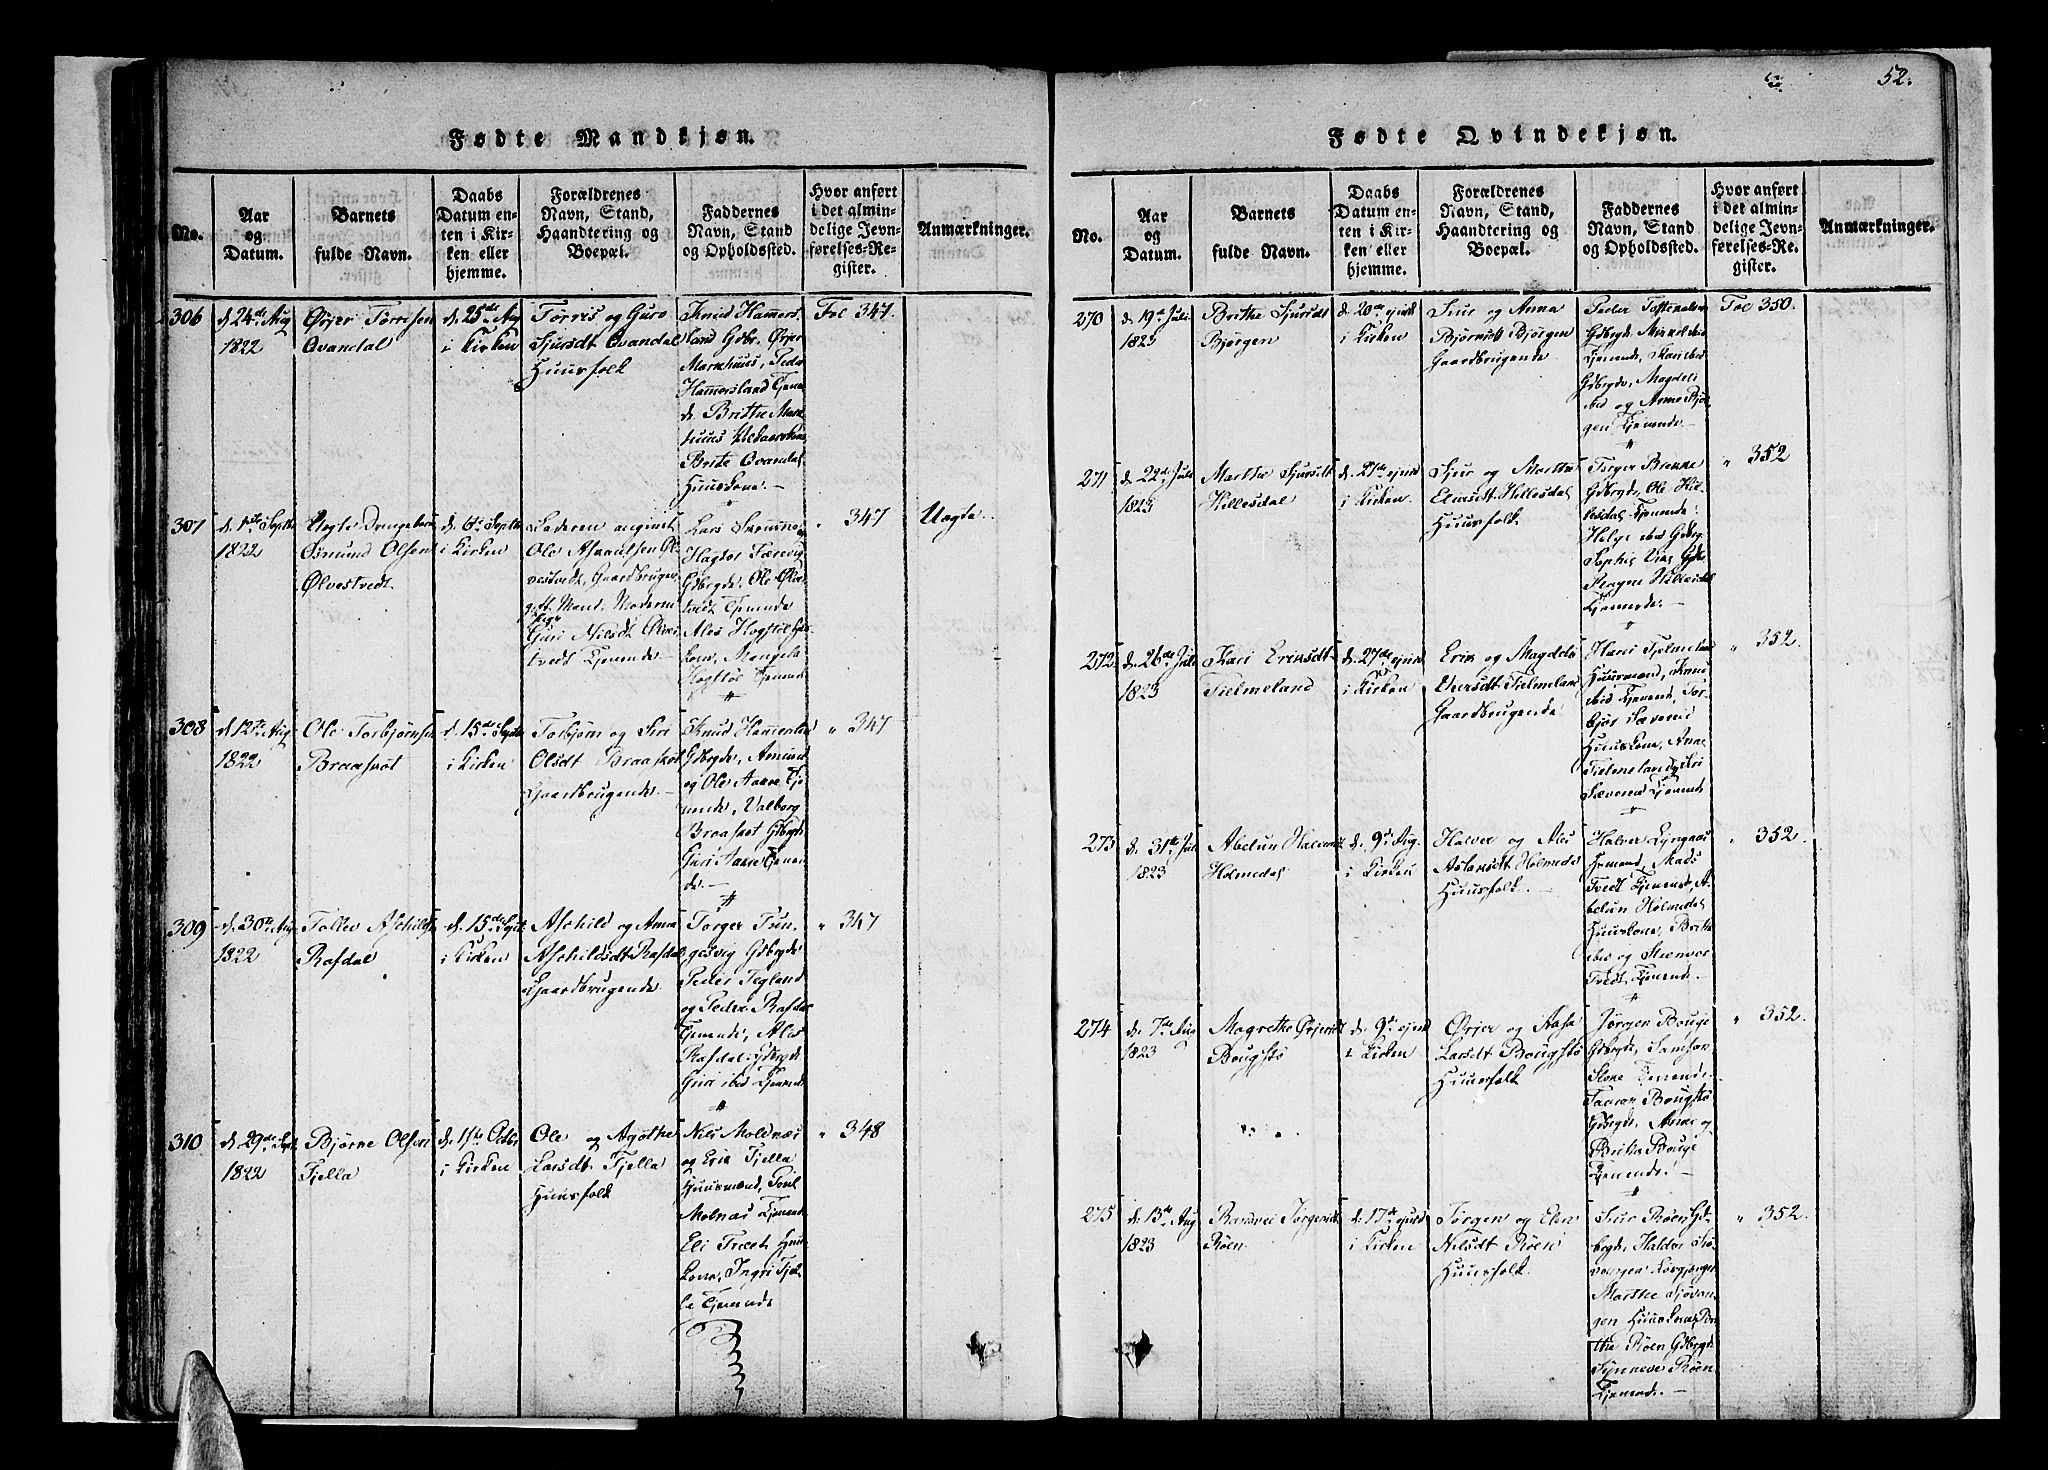 52.
Fødte Mandkjøn.
No.
Aar
og
Datum.
Barnets
fulde Navn.
Daabs
Datum en-
ten i Kir-
ken eller
hjemme.
Forældrenes
Navn, Stand,
Haandtering og
Boepæl.
Faddernes
Navn, Stand
og Opholdssted.
Hvor anført
i det almin-
delige Jevn-
førelses-Re-
gister.
Anmærkninger.
306
d. 24de Aug
1822
Ørjer Torrisen
Qvandal
d. 25de Aug
i Kirken
Torris og Guro
Sjursdt Qvandal
Huusfolk
Knud Hammers
land Gdbr. Ørjer
Markhuus, Peder
Hammersland Tjenen
de. Brithe Mark
huus
Brite Qvandal
Huuskone.
Fol 347
307
d. 1ste Septbr
1822
Ølvestvedt.
d. 6te Septbr
i Kirken
Faderen angivet
Gaardbruger
gift Mand. Moderen
Pige
Guri Nilsdt Ølves
tvedt Tjenende
Lars
Gdbrgde. Ole Ølves
tvedt Tjenende
Hogstøl Tjenende
" 347
Uægte
308
d. 12te Aug
1822
Ole Torbjørnsen
Braaskot
d. 15de Septbr
i Kirken
Torbjørn og Siri
Olsdt Braaskot
Gaardbrugende.
Knud Hammersland
Gdbrgde, Amund
og Ole Aarre Tje
nende, Valborg
Braaskot Gdbrgde
Guri Aarre Tjenen
de.
" 347
309
d. 30te Aug
1822
Tollev Aschilds
Rafdal
d. 15de Septbr
i Kirken
Aschild og Anna
Aschildsdt Rafdal
Gaardbrugende
Torger Tun-
gesvig Gdbrgde
Peder Tegland
og Peder Rafdal
Tjenende, Ales
Rafdal Gdbrgde
Guri ibid Tjenende
" 347
310
d. 29de Sept
1822
Bjørne Olsen
Fjella
d. 1ste Octbr
i Kirken
Ole og Agothe
Larsdt Fjella
Huusfolk
Nils Moldnæs
og Erik Fjella
Huusmænd, Poul
Molnæs Tjenende
Eli Træet Huus
kone, Ingri Fjel
la Tjenende
" 348
Fødte Qvindekjøn.
No.
Aar
og
Datum.
Barnets
fulde Navn.
Daabs
Datum en-
ten i Kir-
ken eller
hjemme.
Forældrenes
Navn, Stand,
Haandtering og
Boepæl.
Faddernes
Navn, Stand
og Opholdssted.
Hvor anført
i det almin-
delige Jevn-
førelses-Re-
gister.
Anmærkninger.
270
d. 19de Juli
1823
Brithe Sjursdt
Bjørgen
d. 20de ejusd
i Kirken
Sjur og Anna
Bjørnsdt Bjørgen
Gaardbrugende
Peder
Gdbrgde,
Tjenende, Kari ibid
Gdbrgde, Magdeli
ibid og Anna Bjør
gen Tjenende
Fol 350.
271
d. 22de Juli
1823
Marthe Sjursdt
Hillesdal
d. 27de ejusd
i Kirken
Sjur og Marthe
Hillesdal
Huusfolk
Torger Brekke
Gdbrgde, Ole Hil
lesdal Tjenende
Helge ibid Gdbrg
Hillesdal
Tjenende.
" 352
272
d. 26de Juli
1823
Kari Eriksdt
Tielmeland
d. 27de ejusd
i Kirken
Erik og Magdela
Iversdt Tielmeland
Gaardbrugende
Hans Tjelmeland
Huusmand,
ibid Tjenende, Tor
bjør Sævereid
Huuskone, Anna
Tielmeland og Siri
Sævereid Tjenende
" 352
273
d. 31te Juli
1823
Abelun Halversdt
Holmedal
d. 9de Aug.
i Kirken
Halver og Ales
Aslaksdt Holmedal
Huusfolk
Halver Lyngnæs
Tvedt Tjenende, A-
belun Holmedal
Huuskone, Brithe
ibid og Steenvor
Tvedt Tjenende
" 352.
274
d. 7de Aug
1823
Magrethe Ørjersdt
Bougstø
d. 9de ejusd
i Kirken
Ørjer og Aasa
Larsdt Bougstø
Huusfolk
Jørgen Bouge
Gdbrgde, Samson
Tjenende.
Bougstø
Gdbrgde, Anna og
Britha Bouge
Tjenende.
" 352.
275
d. 13de Aug
1823
Ransvei Jørgensdt
Røen
d. 17de ejusd
i Kirken
Jørgen og Elen
Nilsdt Røen
Huusfolk
Sjur Røen Gd-
brgde, Haldor
Marthe
gen Huuskone, Bri
the Røen Gdbrgde
Synneve Røen
Tjenende.
" 352.